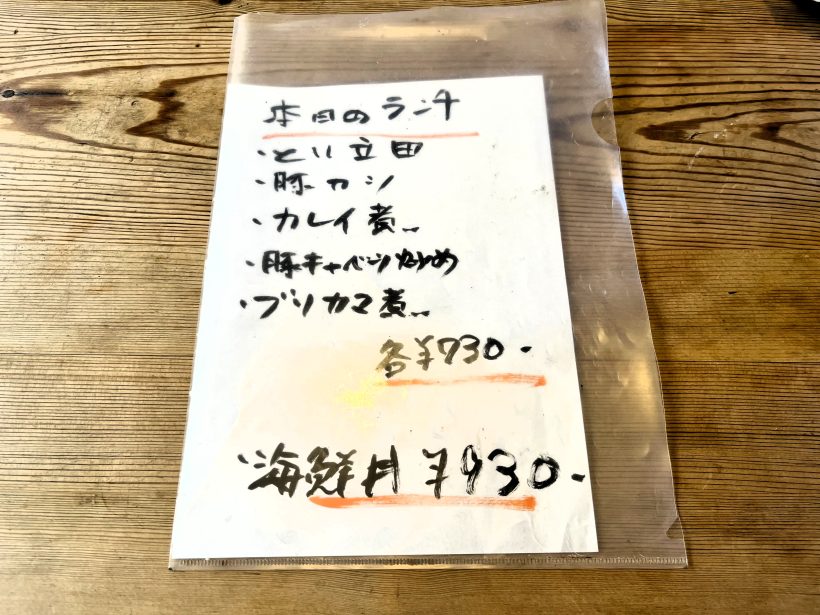 本日のランチ
・とり立田
・豚カツ
・カレイ煮
・豚キャベツ炒め
・ブリカマ煮
各¥730-
・海鮮丼 ¥930-